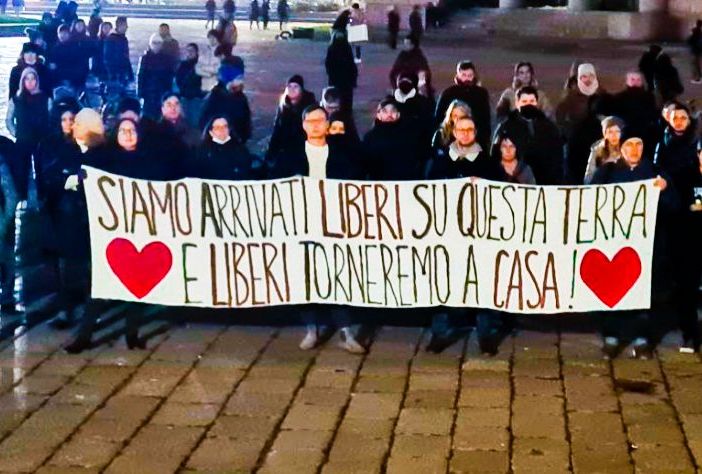 SIAMO ARRIVATI LIBERI SU QUESTA TERRA
E LIBERI TORNEREMO A CASA!